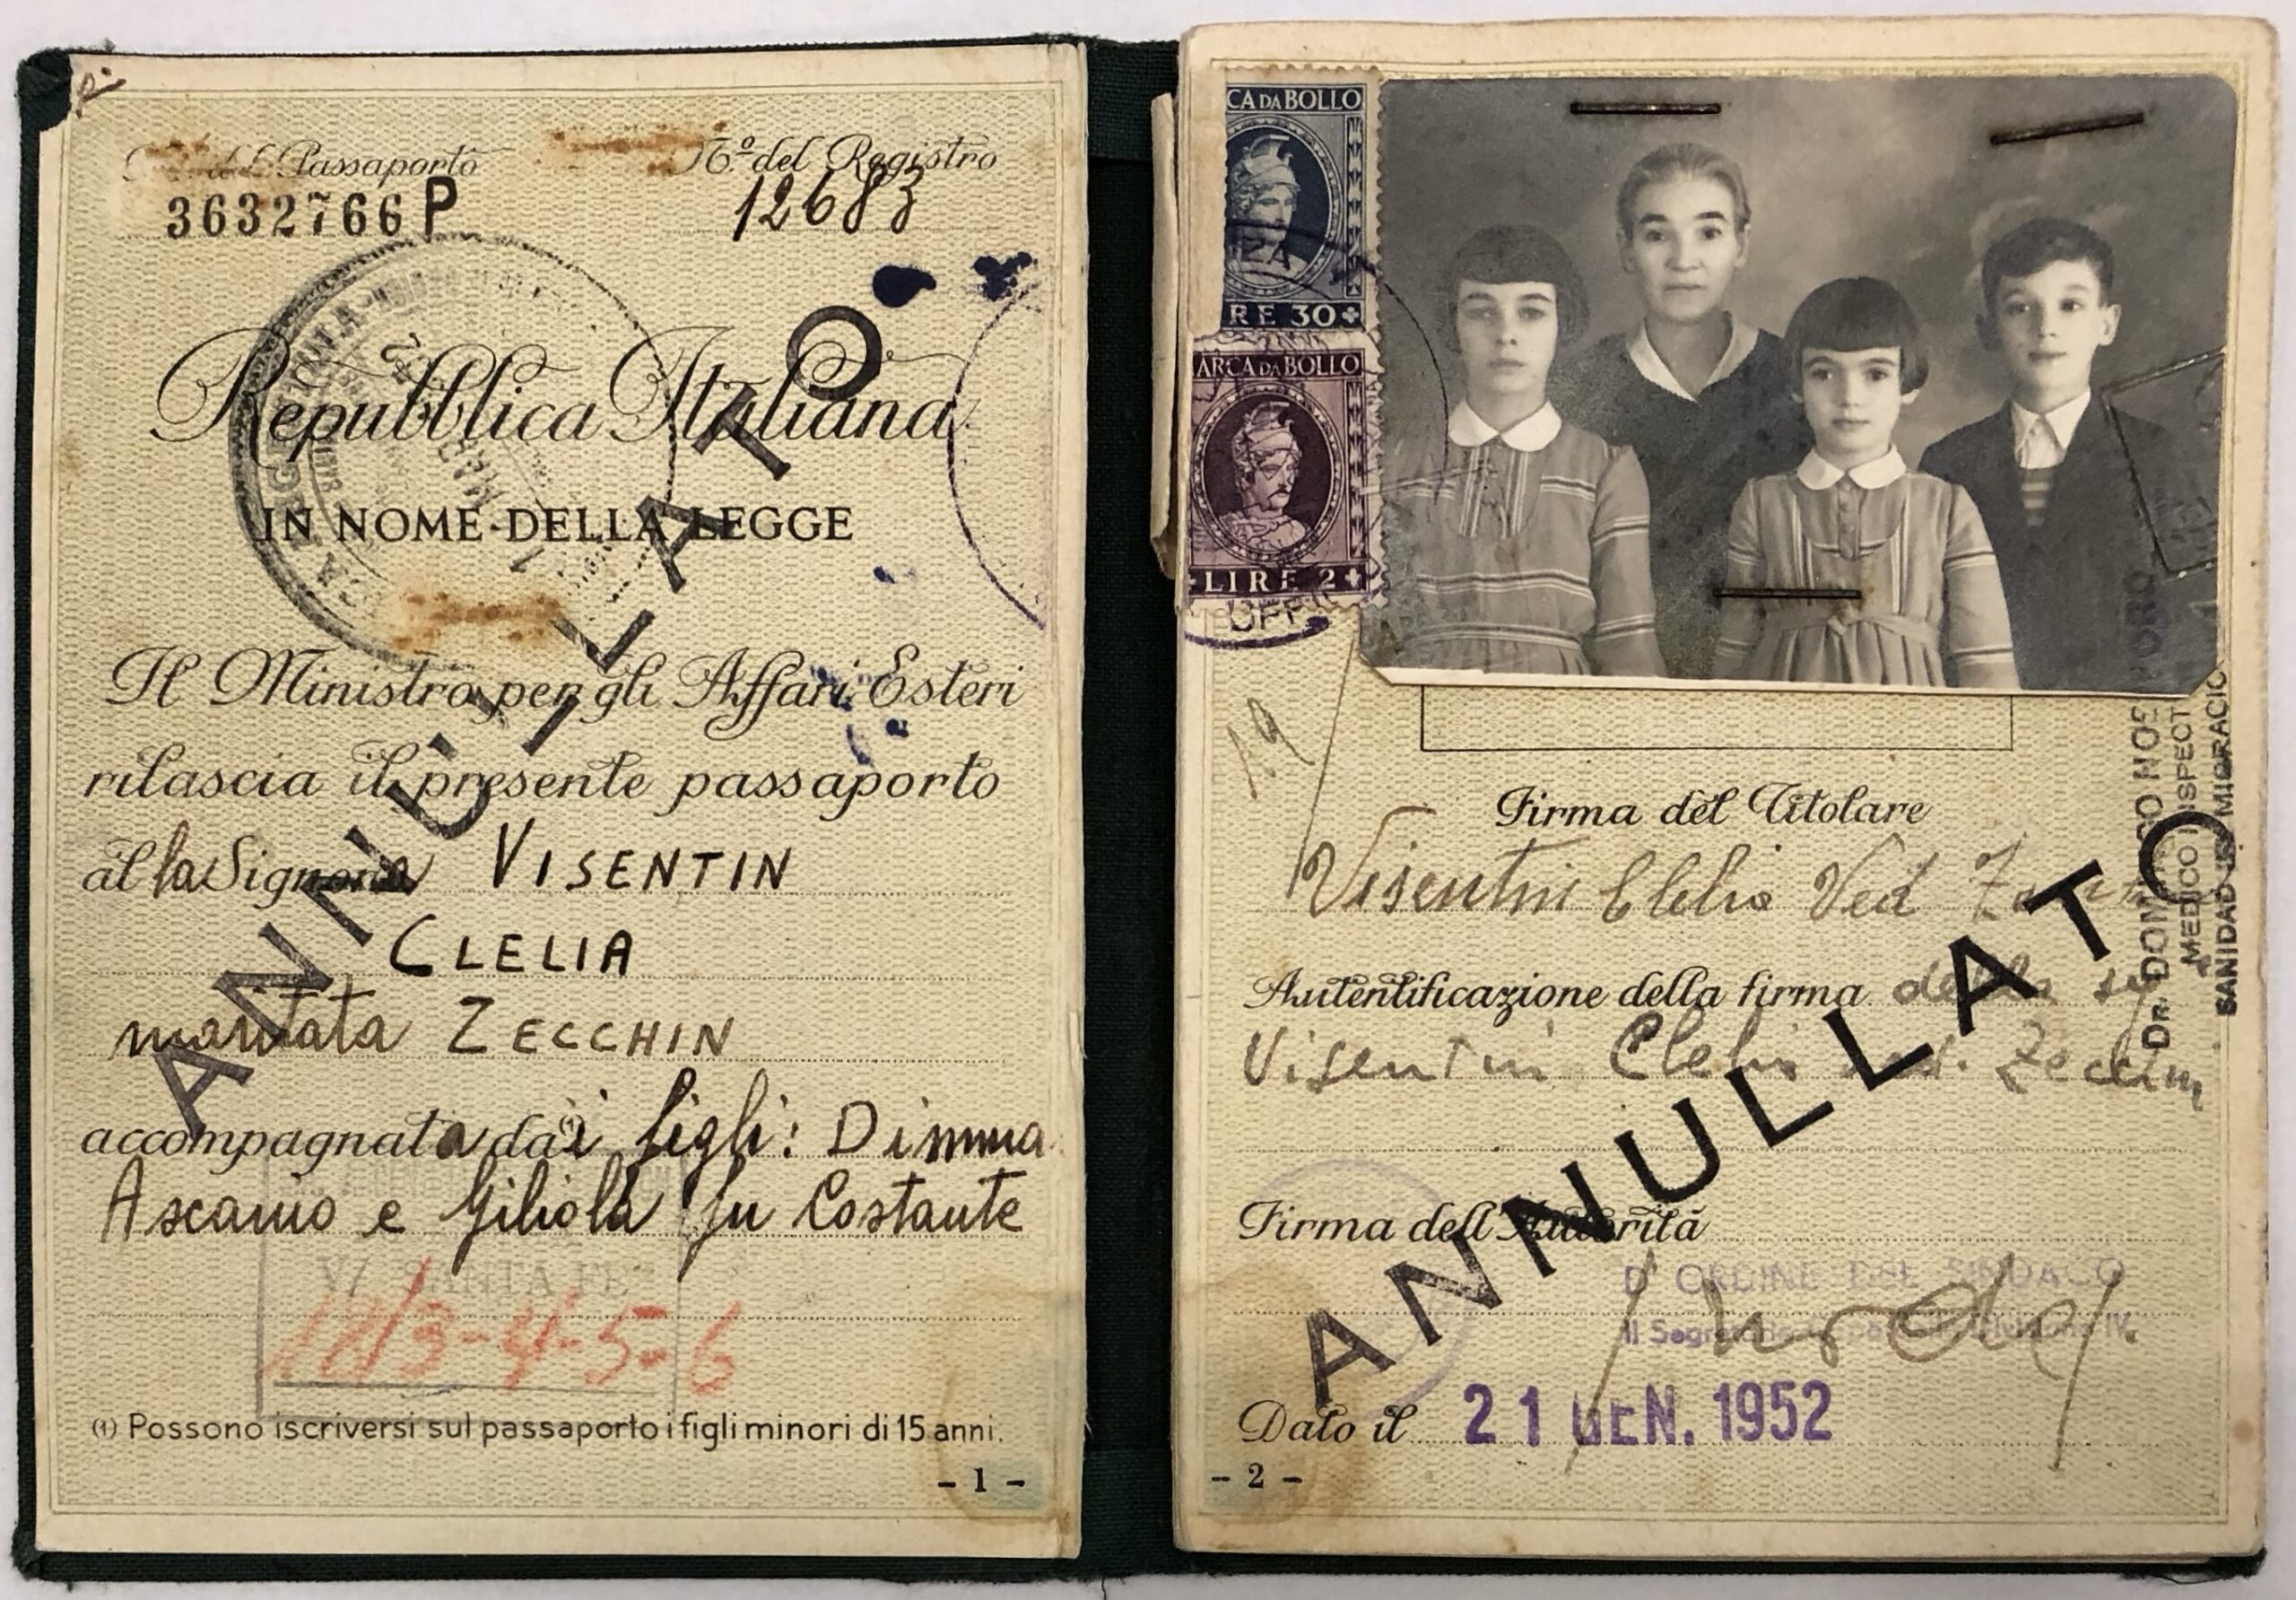 del Passaporto
N.º del Registro
3632766 P
12683
Repubblica Italiana
IN NOME DELLA LEGGE
Il Ministro per gli Affari Esteri
rilascia il presente passaporto
alla Signora VISENTIN
CLELIA
maritata ZECCHIN
accompagnata dai figli: Dimma
Ascanio e Giliola fu Costante
SANTA FE
18/3-4-5-6
(1) Possono iscriversi sul passaporto i figli minori di 15 anni.
- 1 -
ANNULLATO
CA DA BOLLO
RE 30
MARCA DA BOLLO
LIRE 2
19
Firma del Titolare
Visentin Clelia Ved
Autentificazione della firma della
Visentin Clelia ved. Zecchin
Firma dell'Autorità
D'ORDINE DEL SINDACO
Il Segretario
Dato il 21 GEN. 1952
- 2 -
ANNULLATO
MEDICO INSPECT
SANIDAD DE MIGRACIO